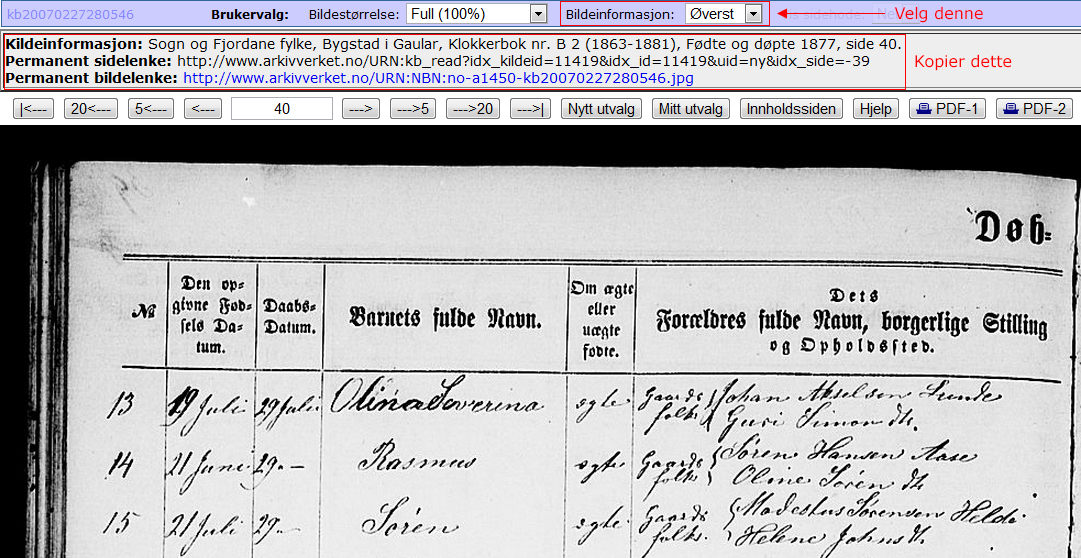 kb20070227280546 Brukervalg: Bildestørrelse: Full (100%) Bildeinformasjon: Øverst Velg denne
Kildeinformasjon: Sogn og Fjordane fylke, Bygstad i Gaular, Klokkerbok nr. B 2 (1863-1881), Fødte og døpte 1877, side 40.
Permanent sidelenke: http://www.arkivverket.no/URN:kb_read?idx_kildeid=11419&idx_id=11419&uid=ny&idx_side=-39
Kopier dette
Permanent bildelenke: http://www.arkivverket.no/URN:NBN:no-a1450-kb20070227280546.jpg
|<--- 20<--- 5<--- <--- 40 ---> --->5 --->20 --->| Nytt utvalg Mitt utvalg Innholdssiden Hjelp PDF-1 PDF-2
Døb=
№
Den op-
givne Fød-
sels Da-
tum.
Daabs-
Datum.
Barnets fulde Navn.
Om ægte
eller
uægte
fødte.
Dets
Forældres fulde Navn, borgerlige Stilling
og Opholdssted.
13 19 Juli 29 Juli Olina Severina ægte Gaards Johan Akselsen Sunde
folk Guri Simon dtr.
14 21 Juni 29 – Rasmus ægte Gaards Søren Hansen Aase
folk Oline Søren dtr
15 21 Juli 29 – Søren ægte Gaards Modestus Sørensen Helde
folk. Helene Johns dtr